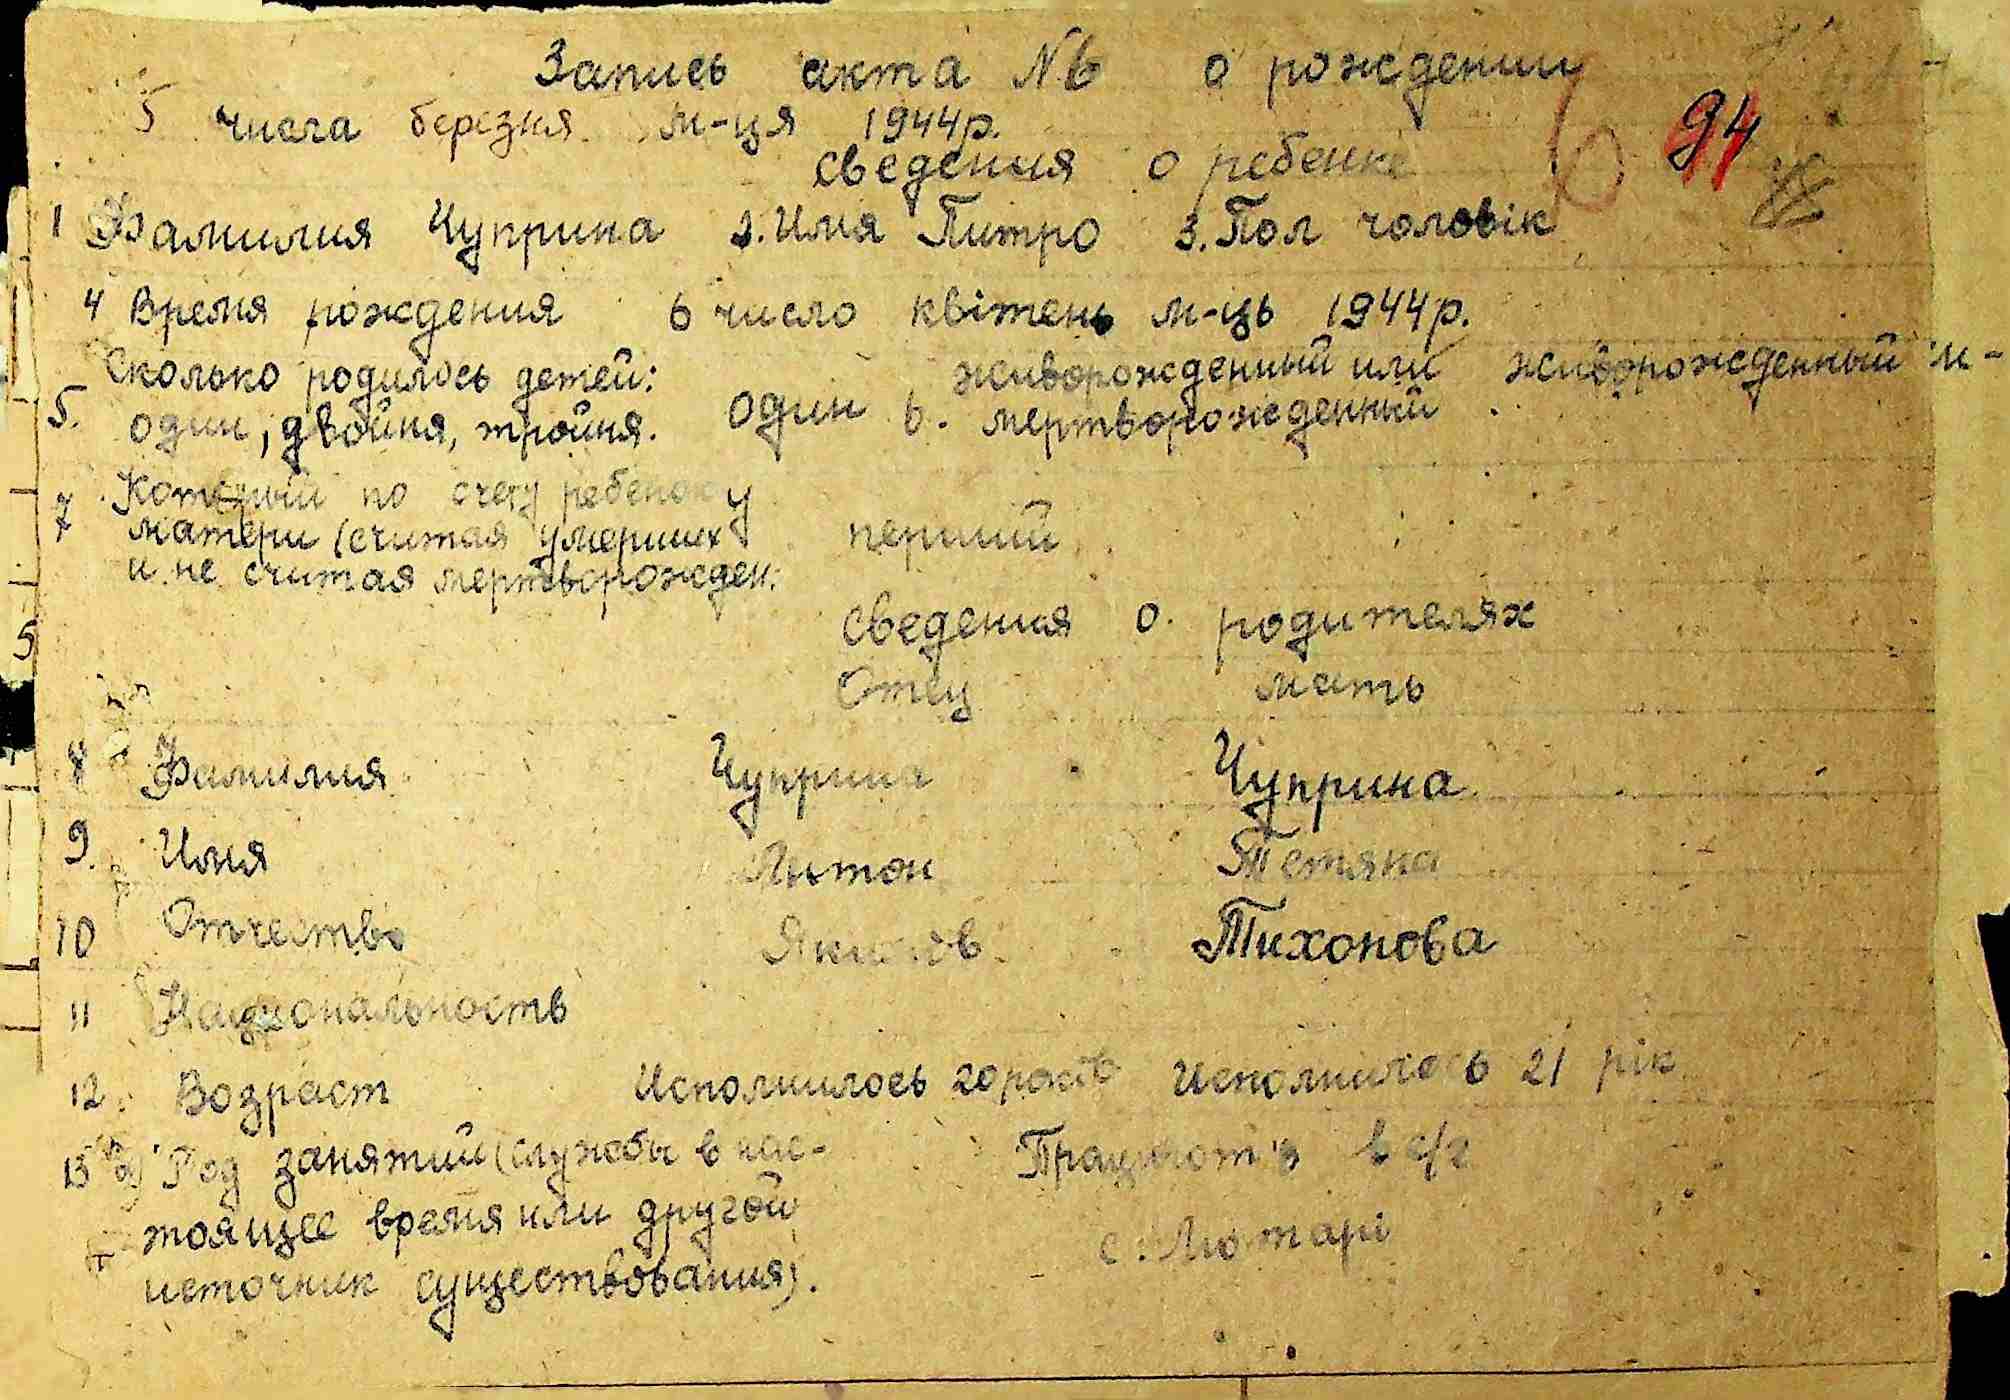 Запись акта № 6 о рождении
5 числа березня м-ця 1944р.
94
сведения о ребенке
1 Фамилия Чуприна 2. Имя Питро 3. Пол чоловік
4 Время рождения 6 число квітень м-ць 1944р.
Сколько родилось детей: живорожденный или живорожденный м-
5. один, двойня, тройня. один 6. мертворожденный
Который по счету ребенок у
7 матери (считая умерших перший
и не считая мертворожден.
сведения о родителях
5
Отец мать
8 Фамилия Чуприна Чуприна
9. Имя Антон Тетяна
10 Отчество Тихонова
11 Национальность
12. Возраст Исполнилось 20 років Исполнилось 21 рік
13 а) Род занятий (службы в нас- Працюють в с/г
тоящее время или другой
с. Лютарі
источник существования).